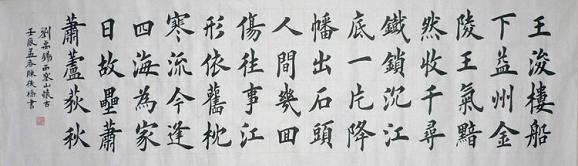 王浚樓船
下益州金
陵王氣黯
然收千尋
鐵鎖沉江
底一片降
幡出石頭
人間幾回
傷往事江
形依舊枕
寒流今逢
四海為家
日故壘蕭
蕭蘆荻秋
劉禹錫西塞山懷古
壬辰孟春陳俊書